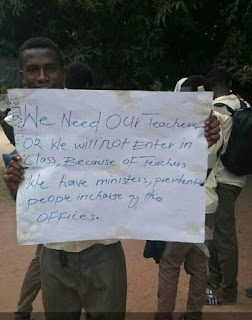 We Need OUR Teachers
OR We will not Enter in
Class, Because of Teachers
We have ministers, presidents,
people, incharge of the
OFFICES.